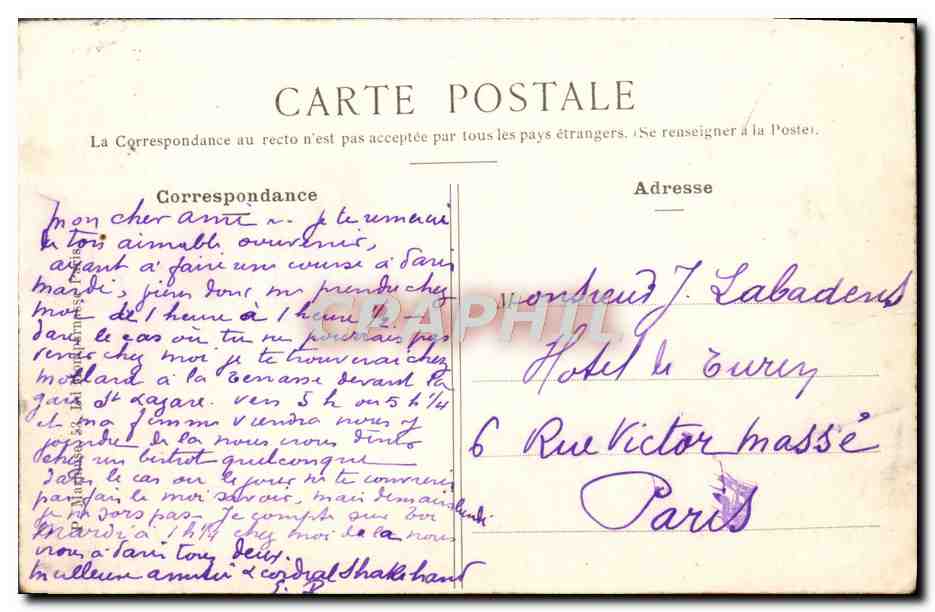 CARTE POSTALE
La Correspondance au recto n'est pas acceptée par tous les pays étrangers. (Se renseigner à la Poste).
Correspondance
mon cher ami je te remercie
de ton aimable souvenir,
ayant à faire une course à Paris
mardi, viens donc me prendre chez
moi de 1 heure à 1 heure 1/2. —
dans le cas où tu ne pourrais pas
venir chez moi je te trouverai chez
mollard à la Terrasse devant la
gare St Lazare. vers 5 h ou 5 h 1/4
et ma femme viendra nous y
joindre de la nous irons dîner
chez un bistrot quelconque
dans le cas ou le jour ne te convienne
pas fais le moi savoir, mais demain lundi
je ne sors pas. Je compte sur toi
mardi à 1 h 1/4 chez moi de la nous
irons à Paris tous deux.
meilleure amitié & cordial Shakehand
Adresse
Monsieur J. Labadens
Hotel de
6 Rue Victor massé
Paris
CPAPHIL
Montparnasse Paris